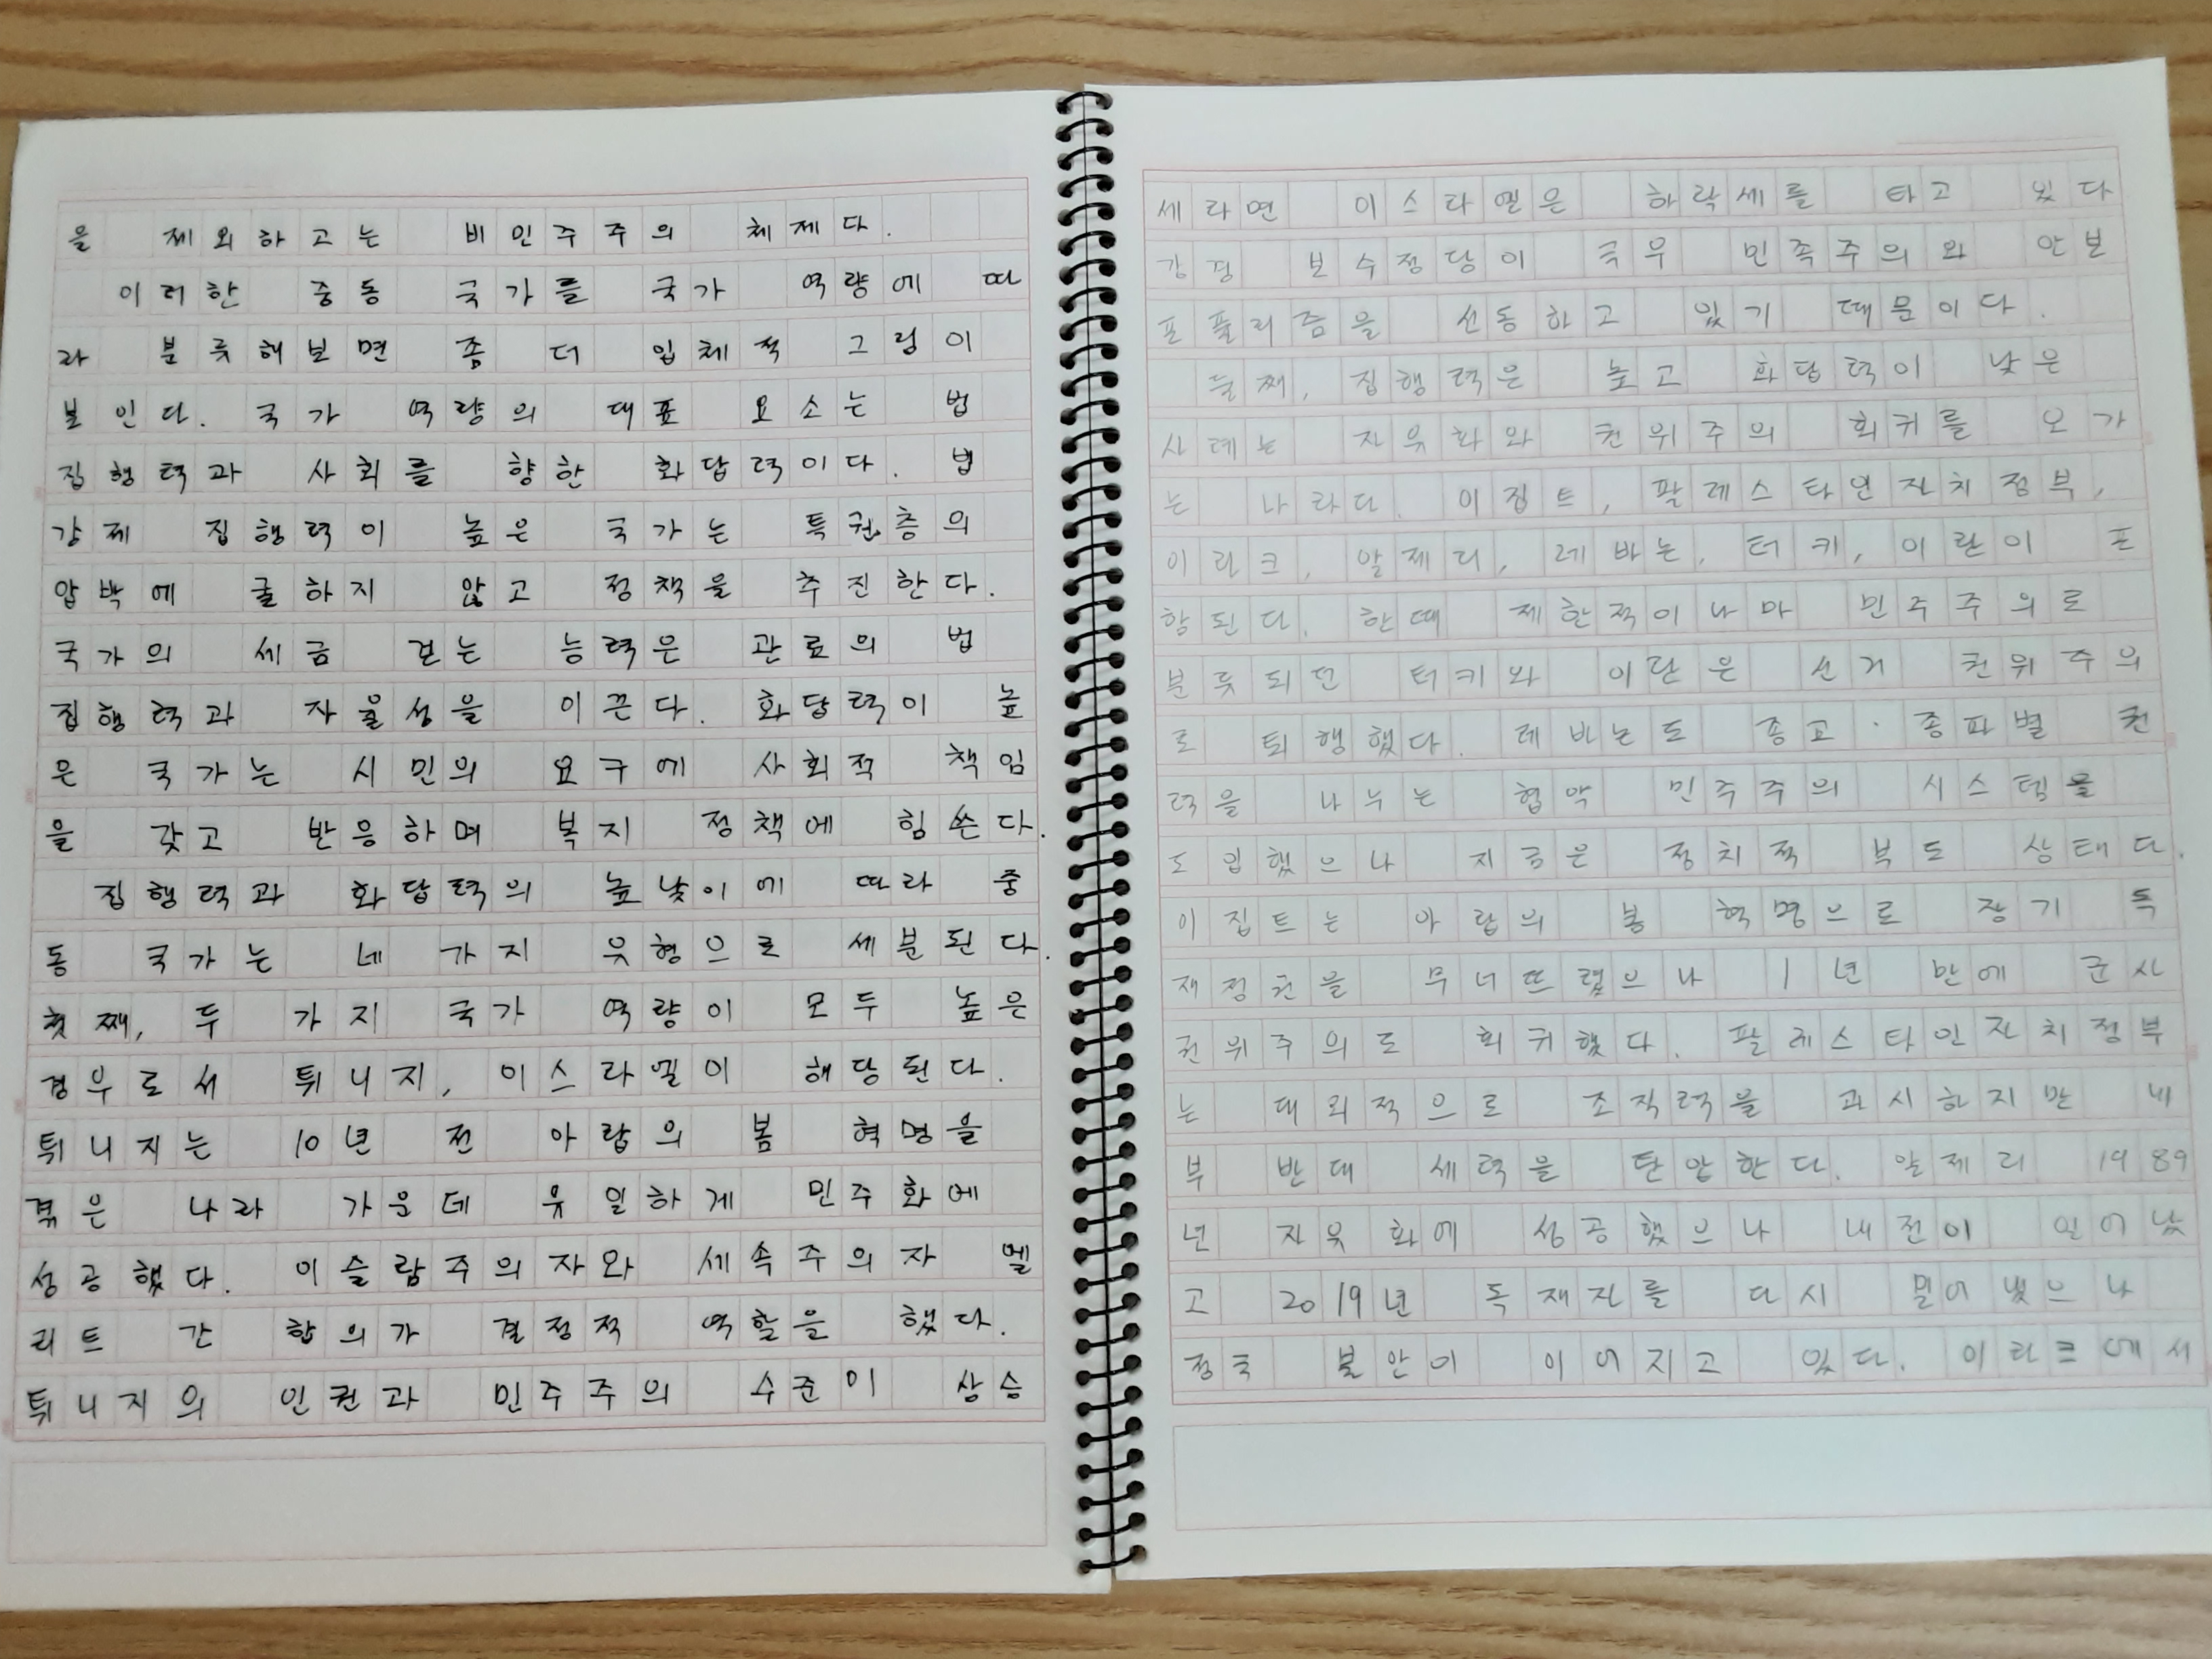 을 제외하고는 비민주주의 체제다.
이러한 중동 국가를 국가 역량에 따
라 분류해보면 좀 더 입체적 그림이
보인다. 국가 역량의 대표 요소는 법
집행력과 사회를 향한 화답력이다. 법
강제 집행력이 높은 국가는 특권층의
압박에 굴하지 않고 정책을 추진한다.
국가의 세금 걷는 능력은 관료의 법
집행력과 자율성을 이끈다. 화답력이 높
은 국가는 시민의 요구에 사회적 책임
을 갖고 반응하며 복지 정책에 힘쓴다.
집행력과 화답력의 높낮이에 따라 중
동 국가는 네 가지 유형으로 세분된다.
첫째, 두 가지 국가 역량이 모두 높은
경우로서 튀니지, 이스라엘이 해당된다.
튀니지는 10년 전 아랍의 봄 혁명을
겪은 나라 가운데 유일하게 민주화에
성공했다. 이슬람주의자와 세속주의자 엘
리트 간 합의가 결정적 역할을 했다.
튀니지의 인권과 민주주의 수준이 상승
세라면 이스라엘은 하락세를 타고 있다
강경 보수정당이 극우 민족주의와 안보
포퓰리즘을 선동하고 있기 때문이다.
둘째, 집행력은 높고 화답력이 낮은
사례는 자유화와 권위주의 회귀를 오가
는 나라다. 이집트, 팔레스타인자치정부,
이라크, 알제리, 레바논, 터키, 이란이 포
함된다. 한때 제한적이나마 민주주의로
분류되던 터키와 이란은 선거 권위주의
로 퇴행했다. 레바논도 종교·종파별 권
력을 나누는 협약 민주주의 시스템을
도입했으나 지금은 정치적 부도 상태다.
이집트는 아랍의 봄 혁명으로 장기 독
재정권을 무너뜨렸으나 1년 만에 군사
권위주의로 회귀했다. 팔레스타인자치정부
는 대외적으로 조직력을 과시하지만 내
부 반대 세력을 탄압한다. 알제리 1989
년 자유화에 성공했으나 내전이 일어났
고 2019년 독재자를 다시 몰아냈으나
정국 불안이 이어지고 있다. 이라크에서